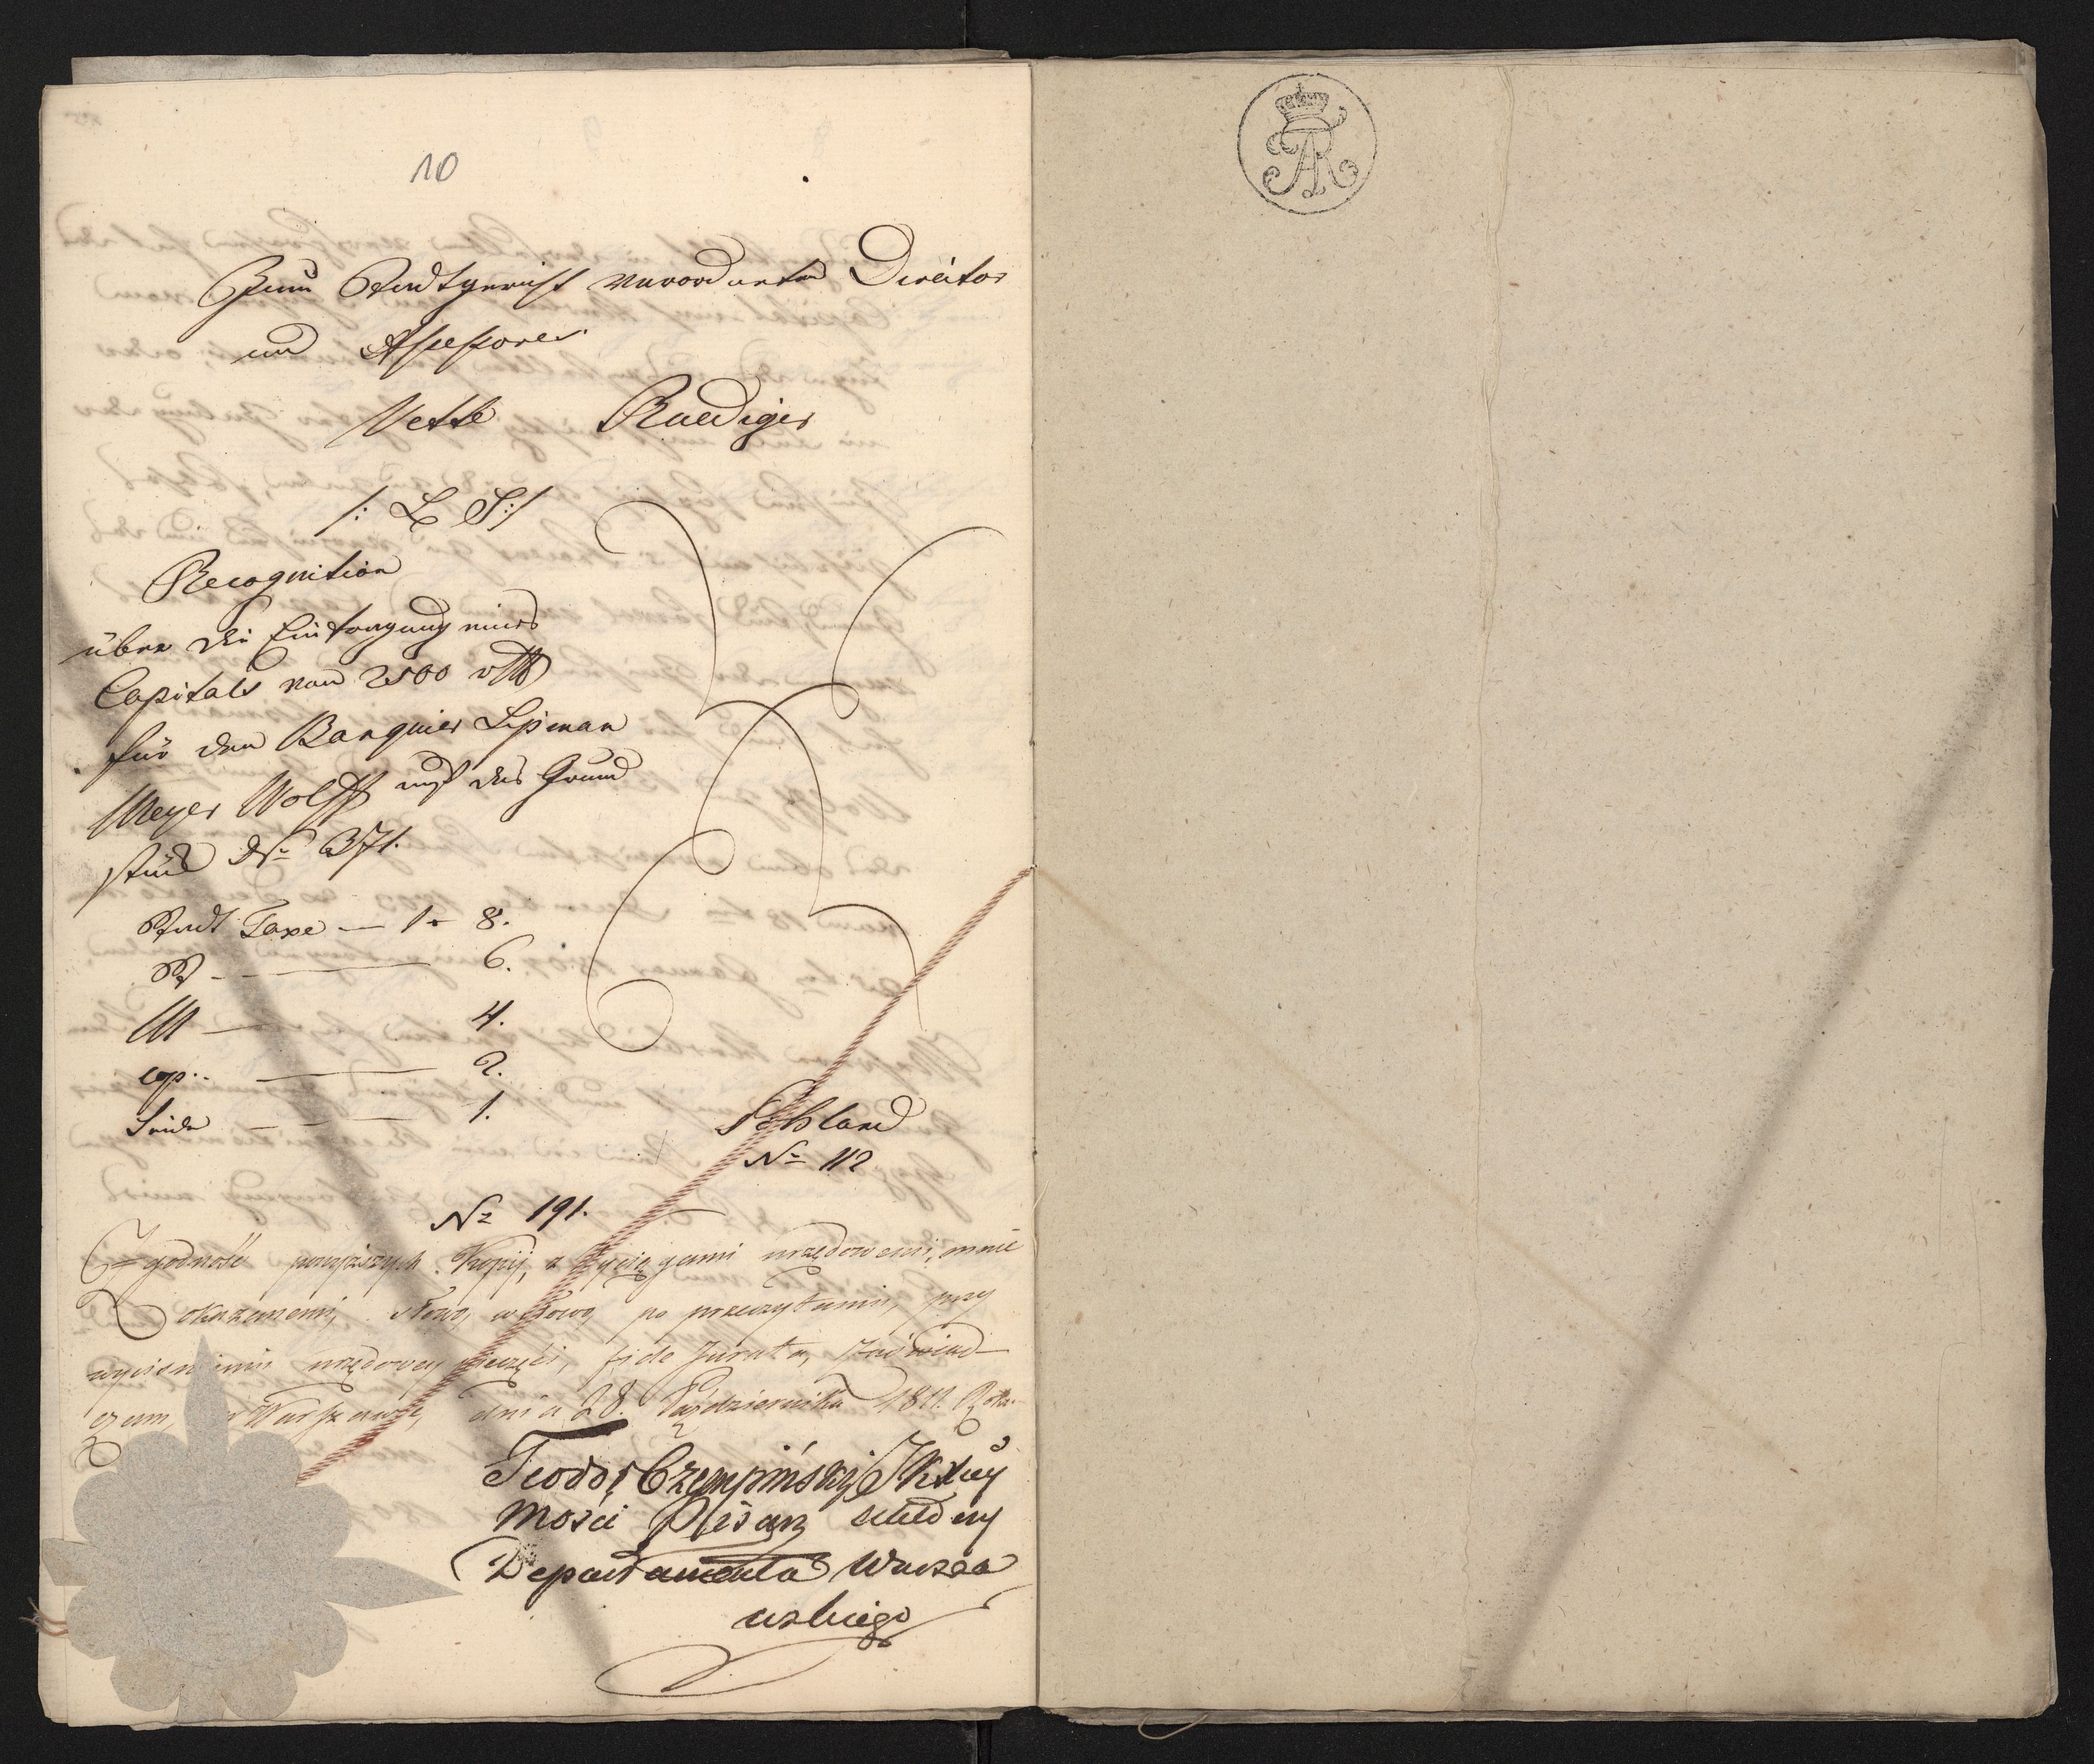 10
Zum Stadtgericht verordneten Director
und Assessores
Vette Ruediger
/: L. S :/
Recognition
über die Eintragung eines
Capitals von 2500
für den Banquier Lipman
Meyer Wolff auf das Grund
stück No 371.
Stadt Taxe — 1 8.
6.
M — 4.
cop. — 2.
Seide — 1.
Schland
No 112
No 191.
Zgodność powyższych Kopij, z Wyciągami urzędowemi, mnie
okazanemi, słowo, w słowo po przeczytaniu, przy
wyciśnieniu urzędowey pieczęci, fide Jurata, zaświad-
czam, w Warszawie, dnia 28. Października 1811. Roku
Teodor Czempiński JKxcy
Mości Pisarz
Departamentu Warsza
wskiego
AR